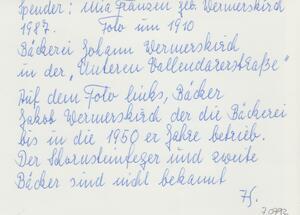 Spender: Mia Franzen geb. Wermerskirch
1987. Foto um 1910
Bäckerei Johann Wermerskirch
in der „Unteren Vallendarerstraße"
Auf dem Foto links, Bäcker
Jakob Wermerskirch der die Bäckerei
bis in die 1950er Jahre betrieb.
Der Schornsteinfeger und zweite
Bäcker sind nicht bekannt